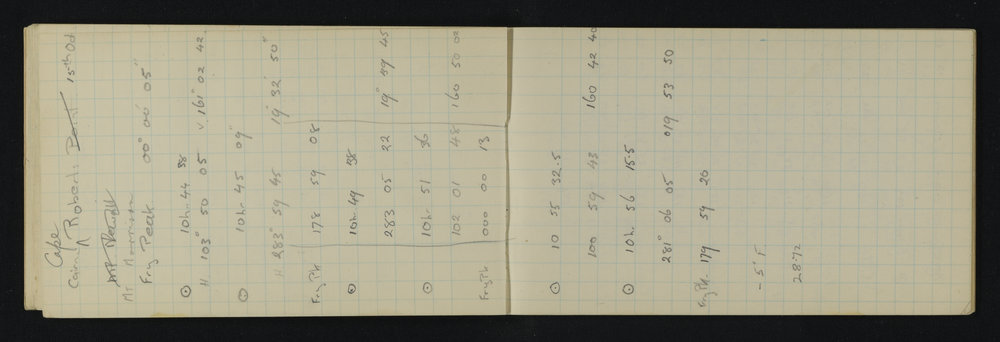 Cape
Cairn ^ Roberts Point 15th Oct
Mt Morrison
Fry Peak 00° 00' 05"
⊙ 10h. 44 38
H 103° 50 05 V. 161° 02 42.
⊙ 10h. 45 09"
H 283° 59 45 19° 32' 50"
Fry Pk 178 59 08
⊙ 10h. 49 38
283 05 22 19° 39 45
⊙ 10h. 51 36
102 01 48 160 50 02
Fry Pk 000 00 13
⊙ 10 55 32.5
100 59 43 160 42 40
⊙ 10h. 56 15.5
281° 06 05 019 53 50
Fry Pk. 179 59 20
- 5° F
28.72